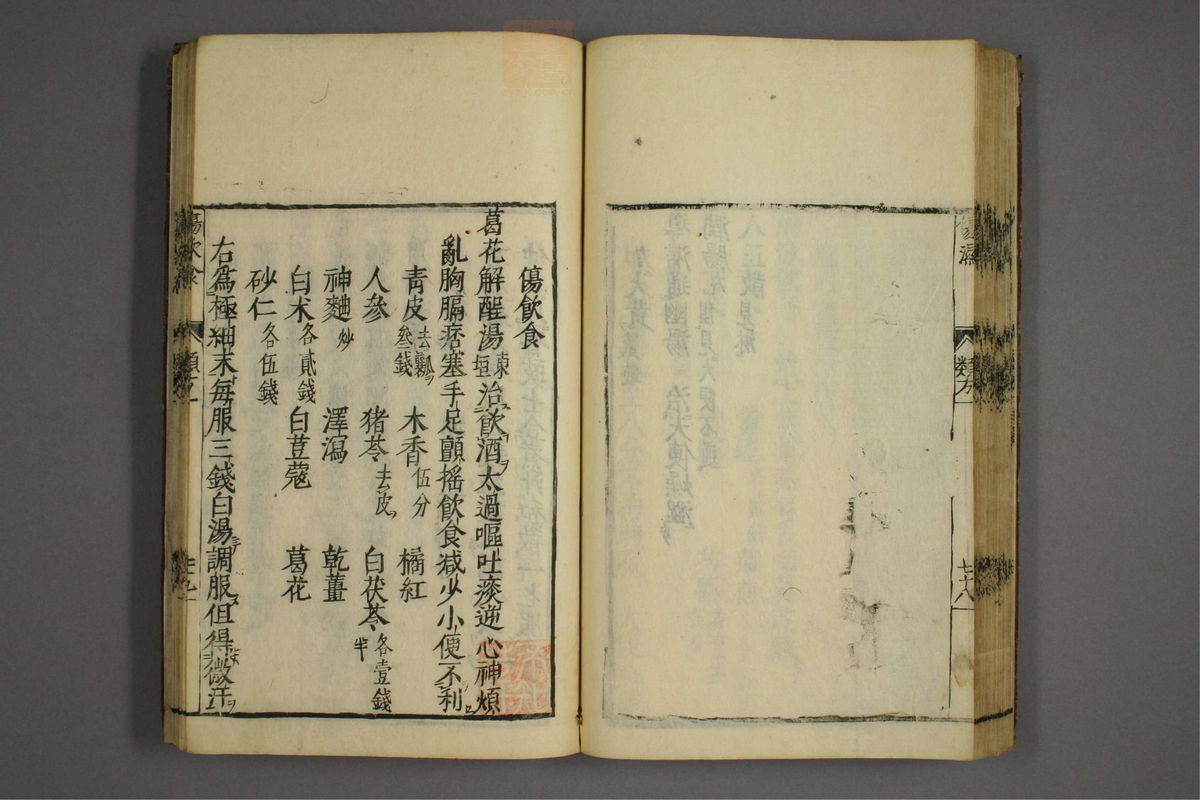 類方
七十八
傷飲食
葛花解酲湯東垣治飲酒太過嘔吐痰逆心神煩
亂胸膈痞塞手足顫搖飲食減少小便不利
青皮去瓤叄錢 木香伍分 橘紅
人參 猪苓去皮 白茯苓各壹錢半
神麯炒 澤瀉 乾薑
白朮各貳錢 白荳蔻 葛花
砂仁各伍錢
右爲極細末每服三錢白湯調服但得微汗
傷飲食
類方
七十九